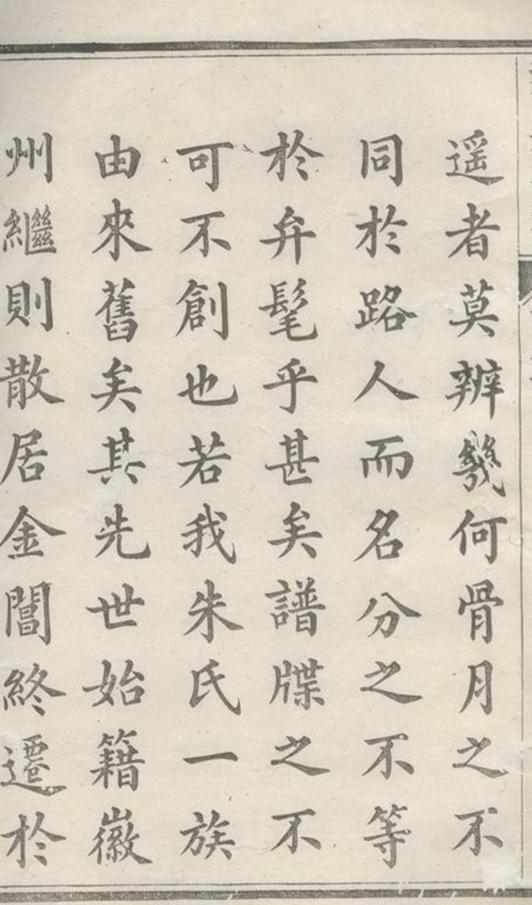 遥者莫辨幾何骨月之不
同於路人而名分之不等
於弁髦乎甚矣譜牒之不
可不創也若我朱氏一族
由來舊矣其先世始籍徽
州繼則散居金閶終遷於